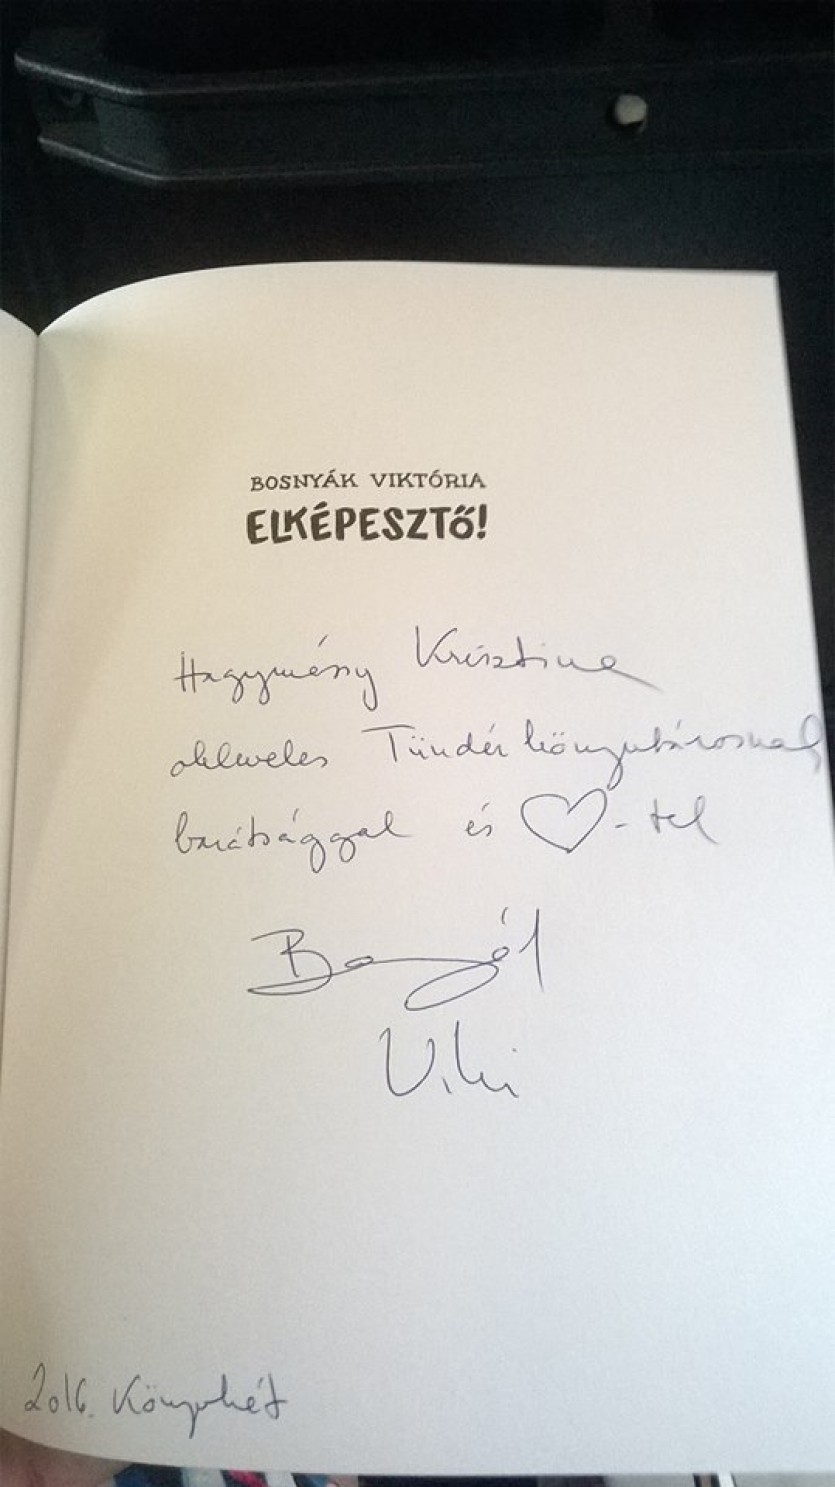 BOSNYÁK VIKTÓRIA
ELKÉPESZTŐ!
Hagymény Krisztina
okleveles Tündérkönyvtárosnak
barátsággal és ♡-tel
Viki
2016. Könyvhét